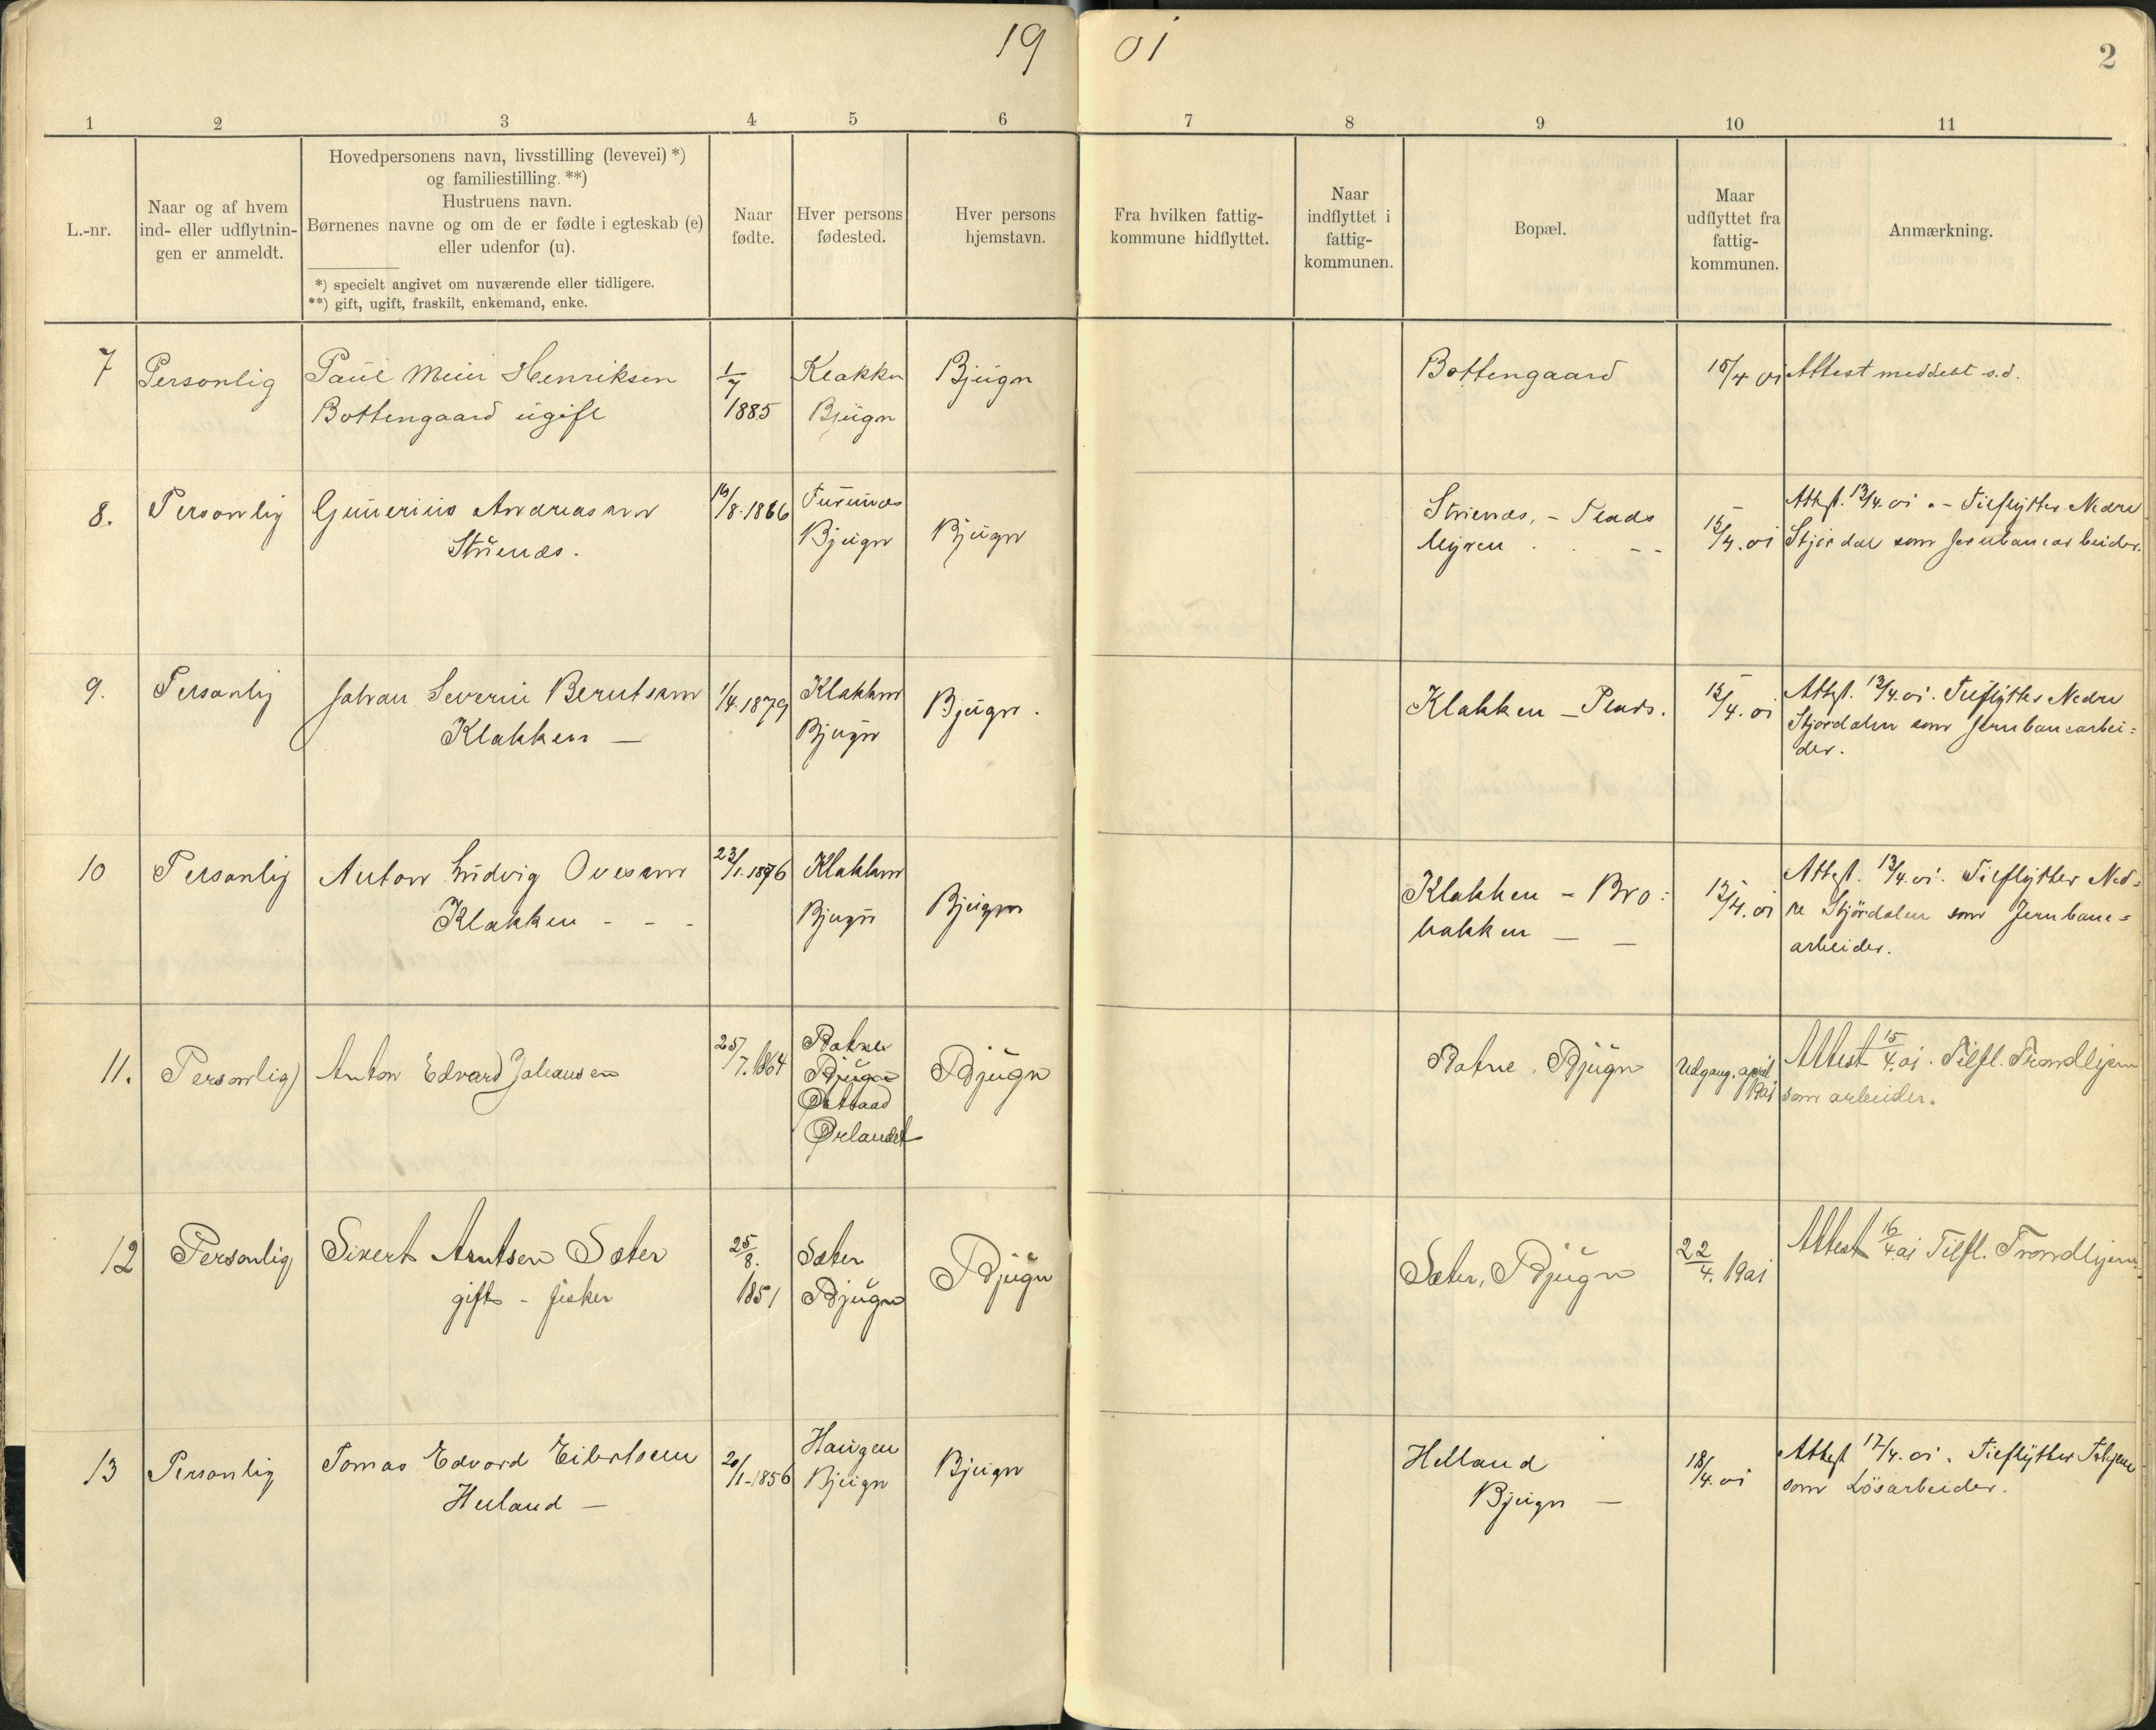 19 01
2
1 2 3 4 5 6 7 8 9 10 11
L.-nr.
Naar og af hvem
ind- eller udflytnin-
gen er anmeldt.
Hovedpersonens navn, livsstilling (levevei) *)
og familiestilling. **)
Hustruens navn.
Børnenes navne og om de er fødte i egteskab (e)
eller udenfor (u).
*) specielt angivet om nuværende eller tidligere.
**) gift, ugift, fraskilt, enkemand, enke.
Naar
fødte.
Hver persons
fødested.
Hver persons
hjemstavn.
Fra hvilken fattig-
kommune hidflyttet.
Naar
indflyttet i
fattig-
kommunen.
Bopæl.
Maar
udflyttet fra
fattig-
kommunen.
Anmærkning.
7 Personlig Paul Henriksen 1/7 Klakken Bjugn Bottengaard 15/4 01 Attest meddelt s.d.
Bottengaard ugift 1885 Bjugn
8. Personlig Gunerius Andreassen /8.1866 Bjugn Strienæs, - Plads 15/4.01 Attest. 13/4.01 .- Tilflytter Nedre
Strienæs. Bjugn Myren - - Stjørdal som Jernbanearbeider.
9. Personlig Johan Severin Berntsen 1/4.1879 Klakken Bjugn. Klakken - Plads. 15/4.01 Attest. 13/4.01. Tilflytter Nedre
Klakken - Bjugn Stjørdalen som Jernbanearbei=
der.
10 Personlig Anton Ludvig Ovesen 23/1.1876 Klakken Bjugn Klakken - Bro= 15/4.01 Attest. 13/4.01. Tilflytter Ned=
Klakken - - - Bjugn bakken - - re Stjördalen som Jernbane=
arbeider.
11. Personlig Anton Edvard Johansen 25/7.1864 Botne Bjugn Botne, Bjugn Udgang. april Attest 15/4.01. Tilfl. Trondhjem
Bjugn 1901 som arbeider.
Ørlandet
12 Personlig Sivert Arntsen Sæter 25/8. Sæter Bjugn Sæter, Bjugn 22/4. 1901 Attest 16/4.01 Tilfl. Trondhjem
gift - fisker 1851 Bjugn
13 Personlig Tomas Edvard Eilertsen 20/1-1856 Haugen Bjugn Helland 18/4.01 Attest 17/4.01. Tilflytter Tr.hjem
Helland - Bjugn Bjugn - som Lösarbeider.